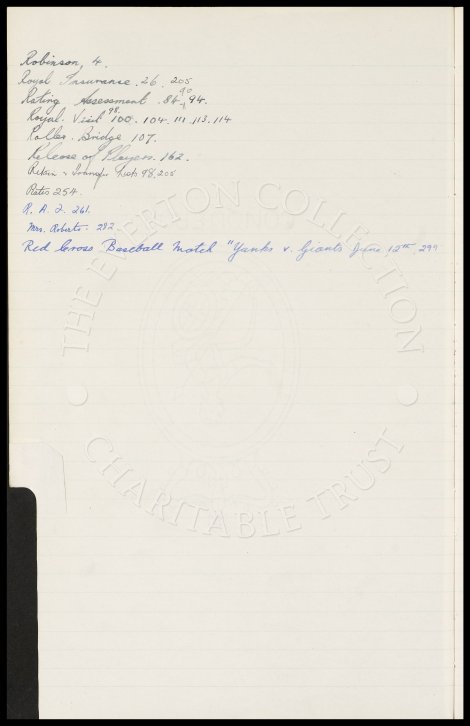 Robinson, 4.
Royal Insurance. 26. 205
Rating Assessment. 84, 90, 94.
Royal. Visit 98. 100. 104. 111. 113. 114
Roller. Bridge 107.
Release of Players. 162.
Retain & Transfer Lists 98, 205
Rates 254.
R. A. F. 261.
Mrs. Roberts. 282
Red Cross Baseball Match "Yanks v. Giants June 12th. 299
THE EVERTON COLLECTION
CHARITABLE TRUST